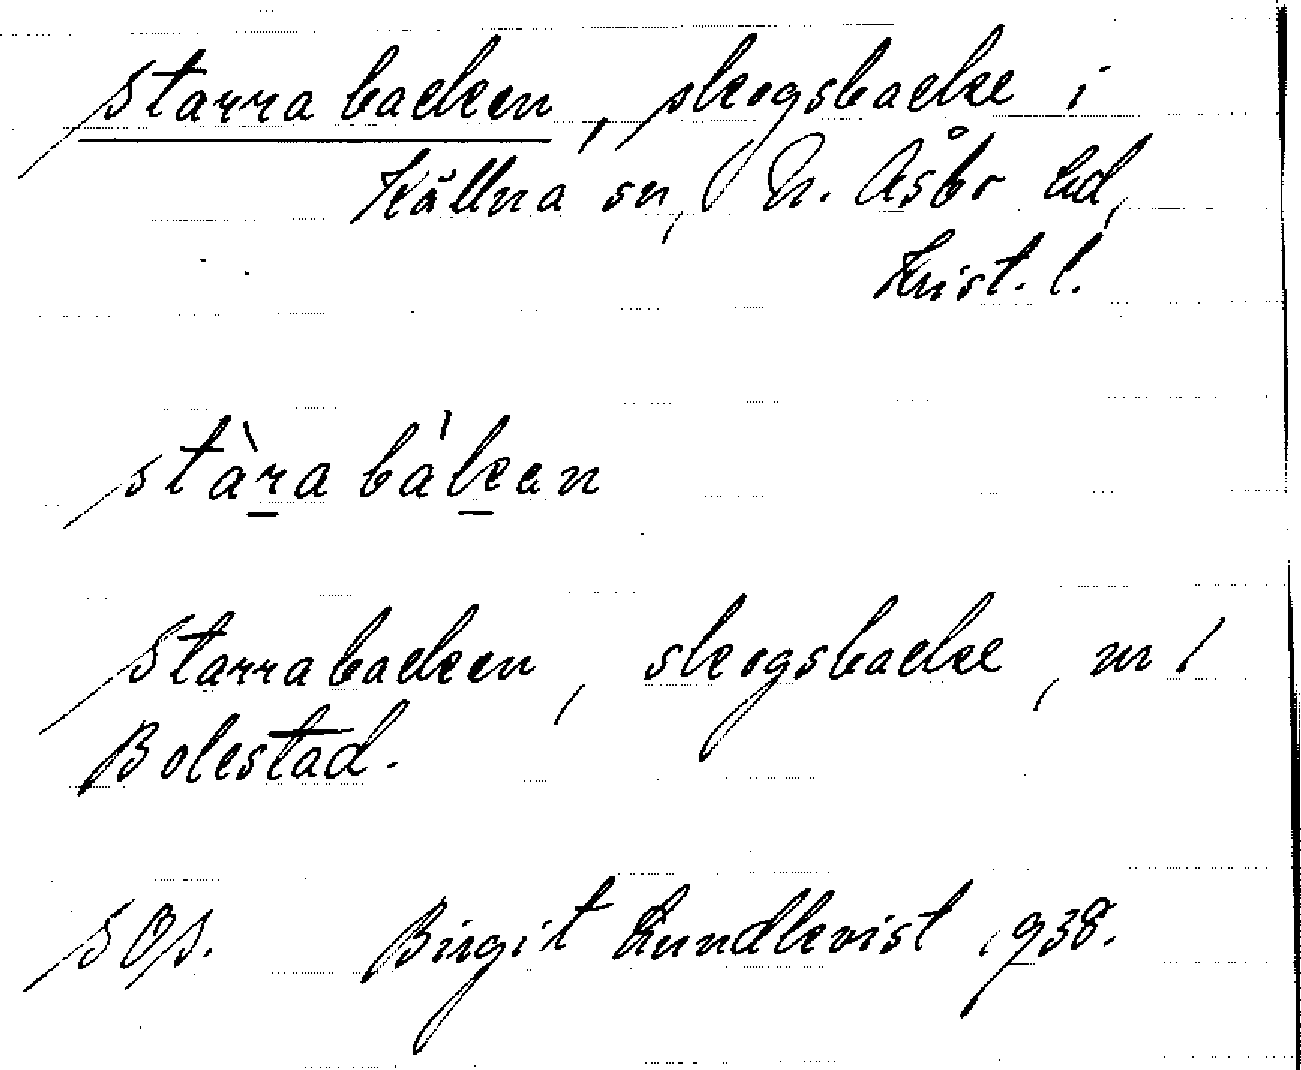 Starrabacken, skogsbacke i
Källna sn, N. Åsbo hd,
Krist. l.
stàra bàkan
Starrabacken, skogsbacke, nr 1
Bolestad.
SOs. Birgit Lundkvist 1938.